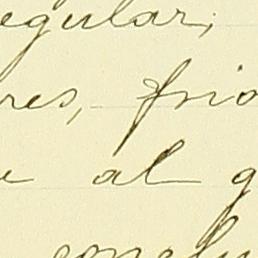 egular;
res, frio
e al g
conclu